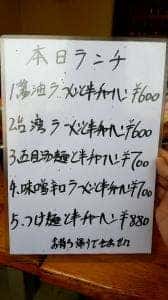 本日ランチ
1.醤油ラーメンと半チャーハン ¥600
2.台湾ラーメンと半チャーハン ¥600
3.五目汤麺と半チャーハン ¥700
4.味噌辛ラーメンと半チャーハン ¥700
5.つけ麺と半チャーハン ¥880
お持ち帰りできません